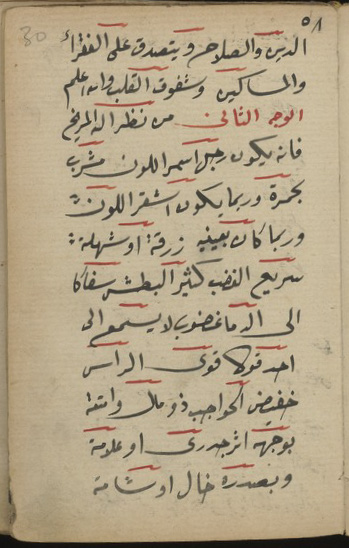 ٥٨
30
الدين والصلاح ويتصدق على الفقراء
والمساكين وشفوق القلب والله اعلم
الوجه الثانى من نظر اله المريخ
فانه يكون رجل اسمر اللون مشرب
بحمرة وربما يكون اشقر اللون
وربما كان بعينيه زرقة او شهلة
سريع الغضب كثير البطش سفاكا
الى الدما غضوب لا يسمع الى
احد قولا قوى الراس
خفيض الحواجب ذو مال وامتعة
بوجهه اثر جدرى او علامة
وبصدره خال او شامة